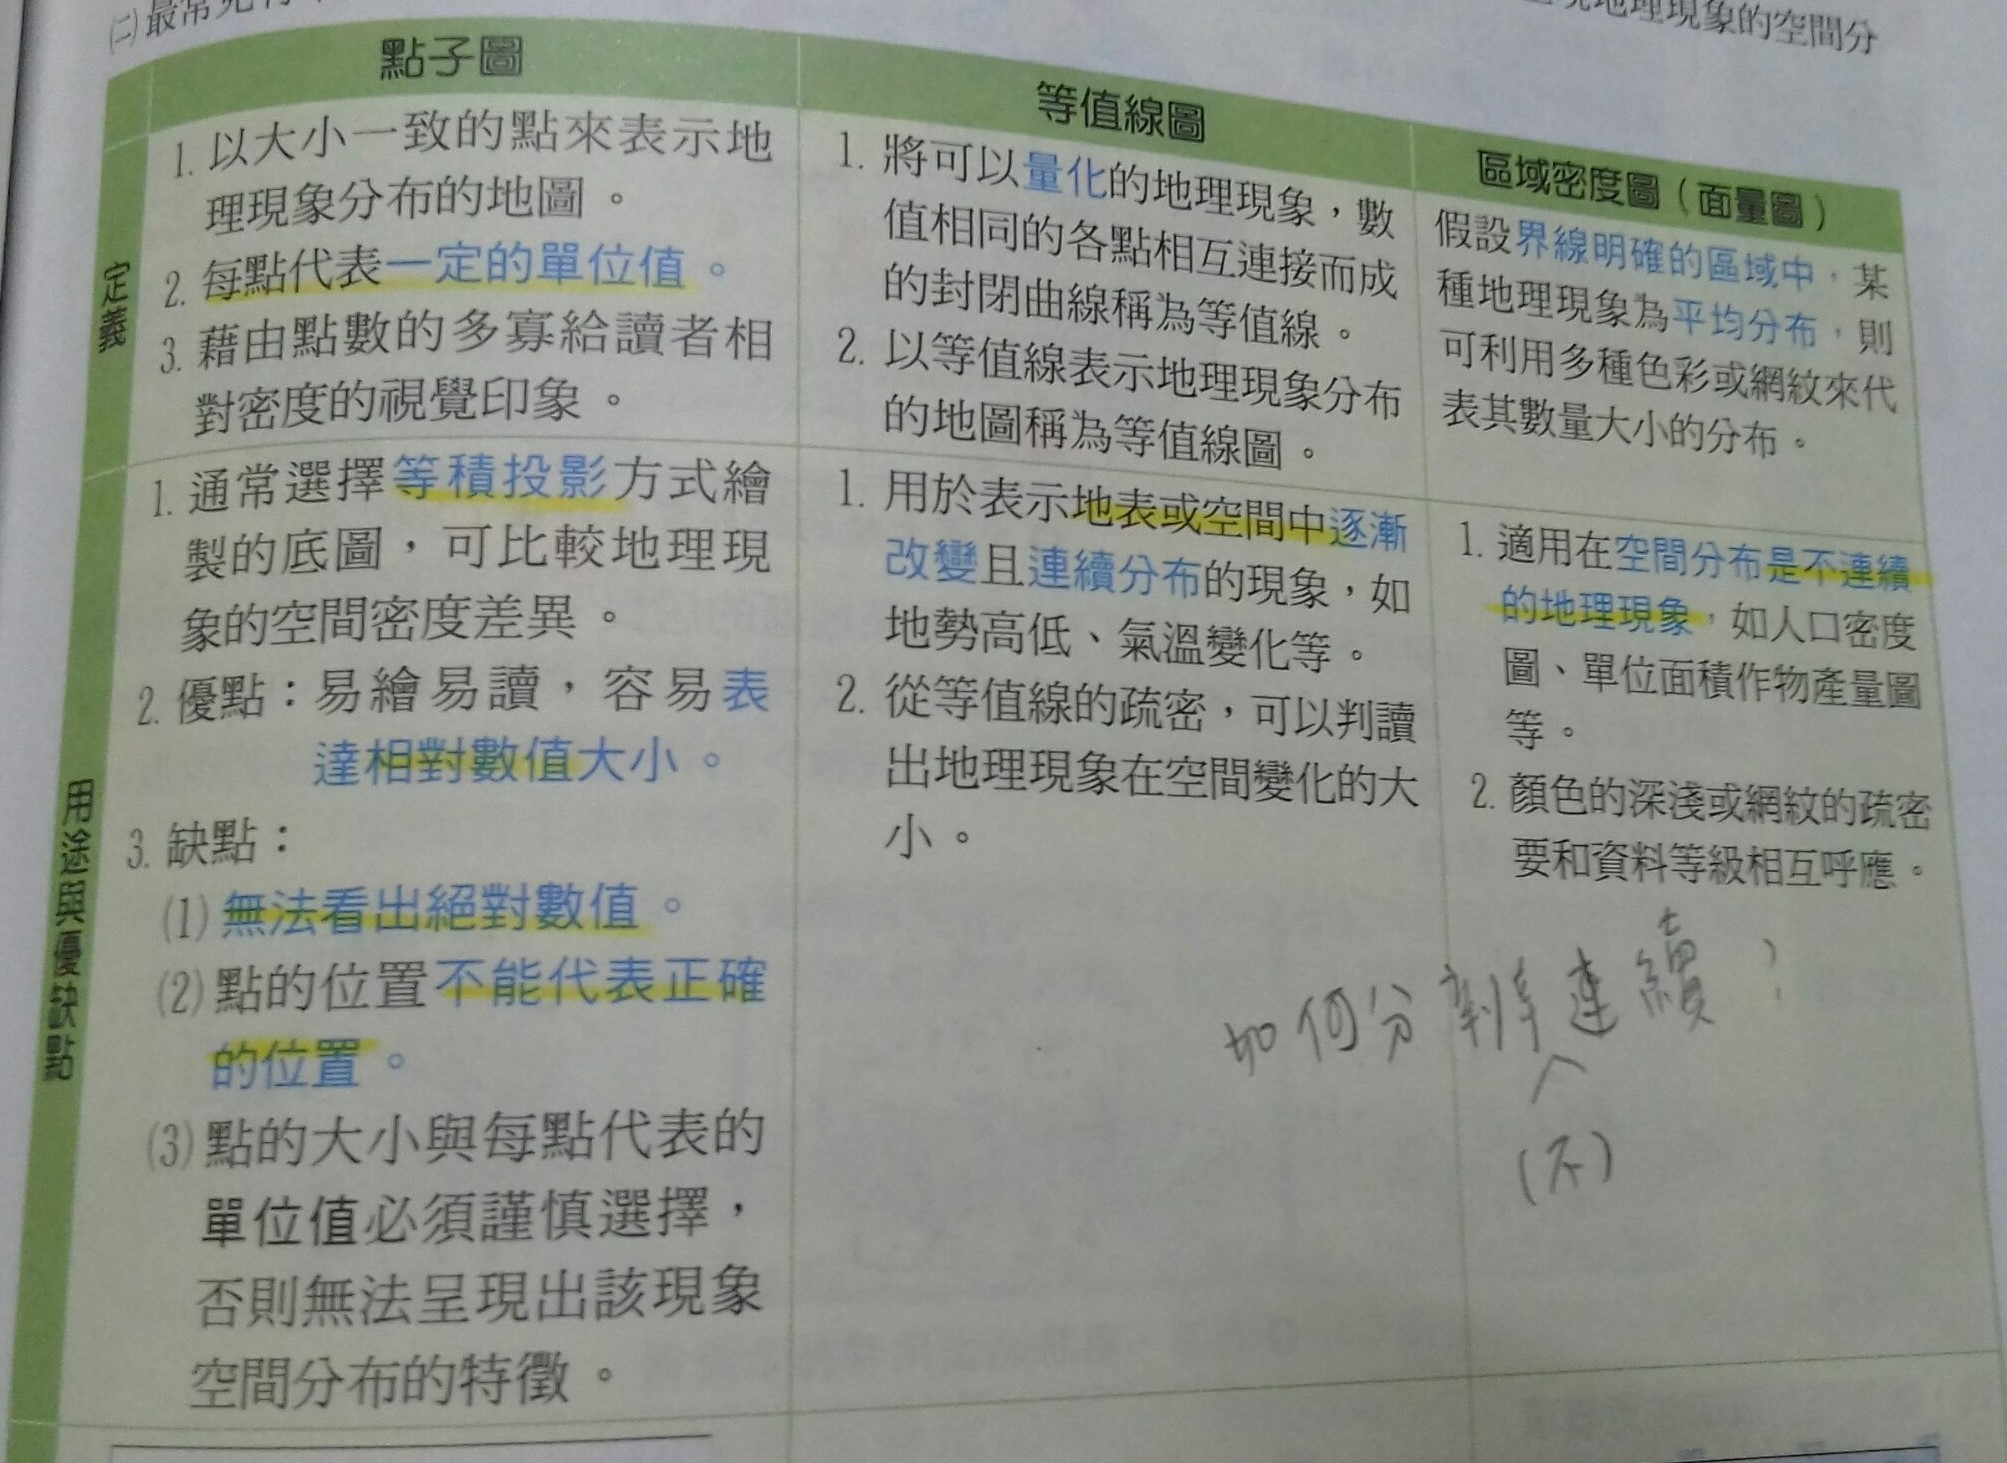 ㈡最常見
地理現象的空間分
點子圖
等值線圖
區域密度圖(面量圖)
定義
1. 以大小一致的點來表示地
理現象分布的地圖。
2. 每點代表一定的單位值。
3. 藉由點數的多寡給讀者相
對密度的視覺印象。
1. 將可以量化的地理現象,數
值相同的各點相互連接而成
的封閉曲線稱為等值線。
2. 以等值線表示地理現象分布
的地圖稱為等值線圖。
假設界線明確的區域中,某
種地理現象為平均分布,則
可利用多種色彩或網紋來代
表其數量大小的分布。
用途與優缺點
1. 通常選擇等積投影方式繪
製的底圖,可比較地理現
象的空間密度差異。
2. 優點:易繪易讀,容易表
達相對數值大小。
3. 缺點:
(1)無法看出絕對數值。
(2)點的位置不能代表正確
的位置。
(3)點的大小與每點代表的
單位值必須謹慎選擇,
否則無法呈現出該現象
空間分布的特徵。
1. 用於表示地表或空間中逐漸
改變且連續分布的現象,如
地勢高低、氣溫變化等。
2. 從等值線的疏密,可以判讀
出地理現象在空間變化的大
小。
1. 適用在空間分布是不連續
的地理現象,如人口密度
圖、單位面積作物產量圖
等。
2. 顏色的深淺或網紋的疏密
要和資料等級相互呼應。
如何分辨連續?
(不)